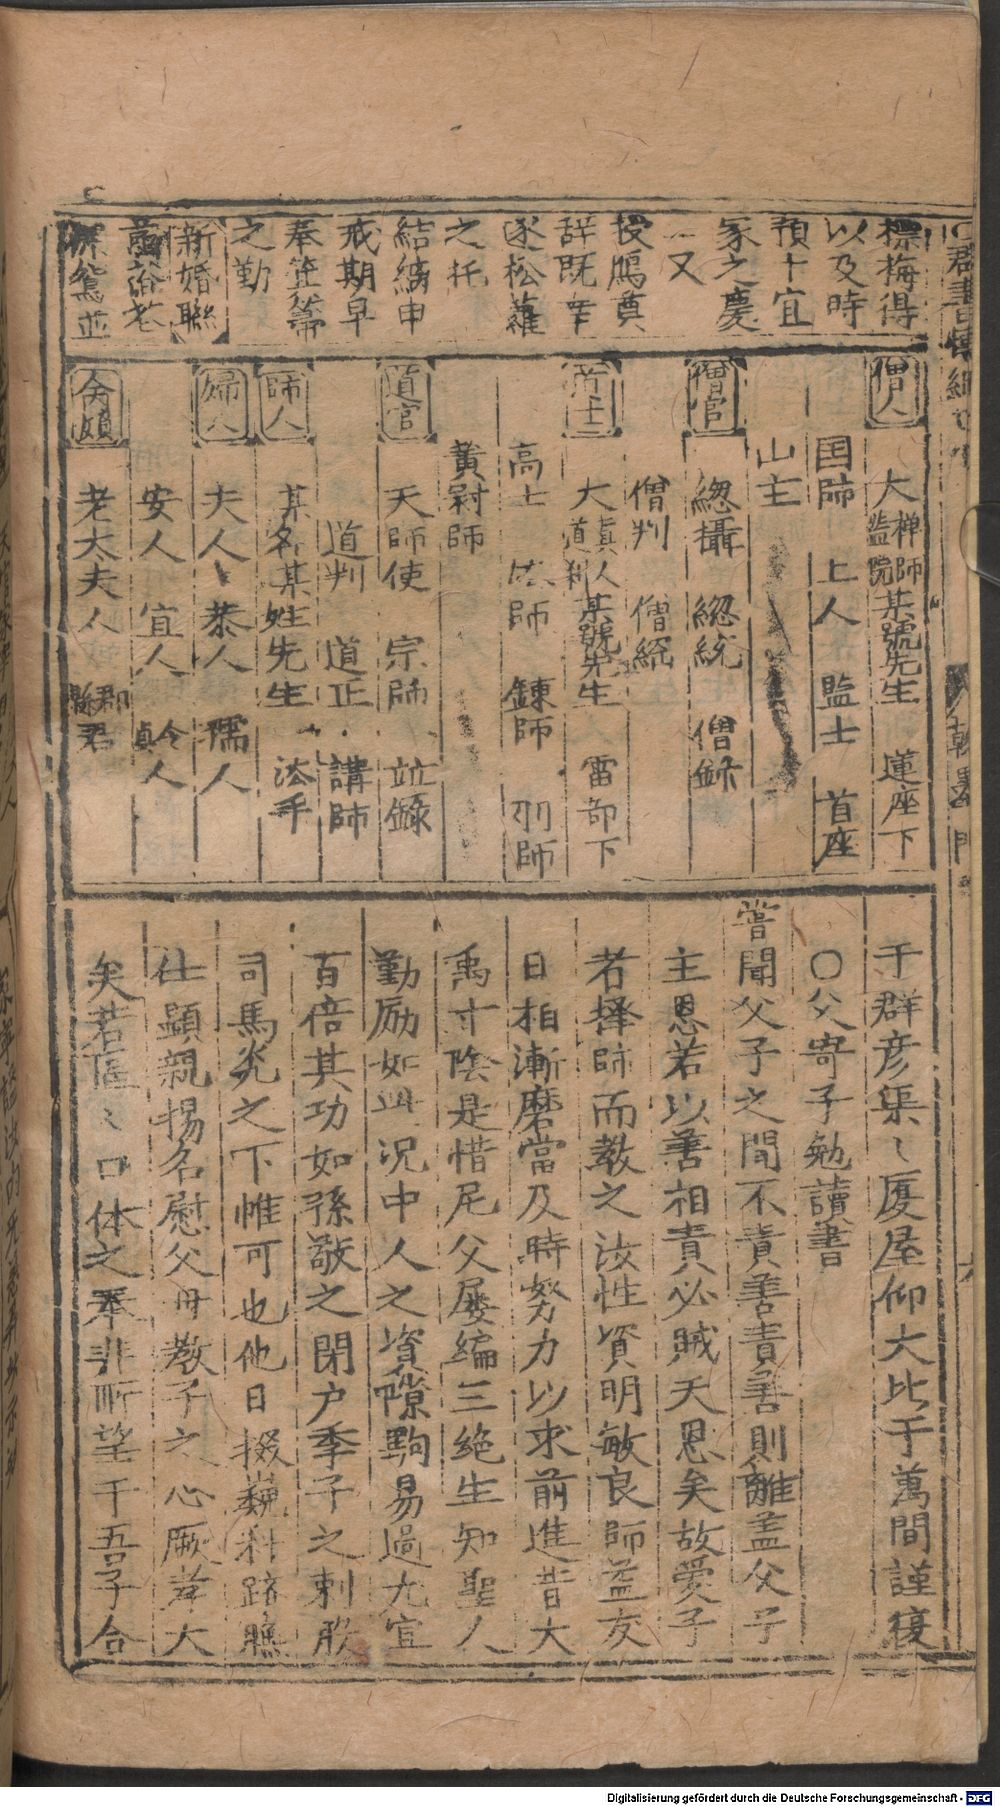 標梅得
以及時
預十宜
家之慶
又
授鴈奠
辞既幸
遂松蘿
之托
結縭申
戒期早
奉箕箒
之勤
新婚聯
並
僧人
大禅師監院某號先生 蓮座下
国師 上人 監士 首座
山主
僧官
緫攝 緫統 僧錄
僧判 僧統
道士
大真人道判某號先生 雷部下
高士 法師 鍊師 羽師
黄冠師
道官
天師使 宗師
道判 道正 講師
師人
某名某姓先生 法手
婦人
夫人 恭人 孺人
安人 宜人 令人
老太夫人 郡君縣君
于群彦渠〻厦屋仰大比于萬間謹復
〇父寄子勉讀書
嘗聞父子之間不責善責善則離盖父子
主恩若以善相責必賊天恩矣故愛子
者擇師而教之汝性資明敏良師益友
日相漸磨當及時努力以求前進昔大
禹寸陰是惜尼父屡編三絶生知聖人
勤励如此况中人之資隙駒易過尤宜
百倍其功如孫敬之閉户季子之刺股
司馬光之下帷可也他日掇巍科躋膴
仕顯親揚名慰父母教子之心厥幸大
矣若區〻口体之奉非所望于吾子合
Digitalisierung gefördert durch die Deutsche Forschungsgemeinschaft - DFG